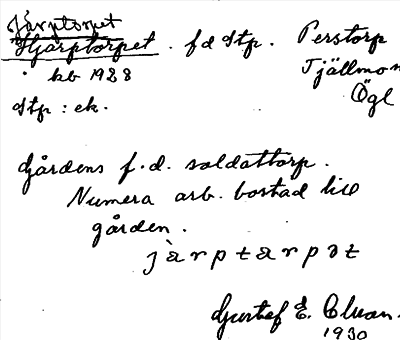 Järptorpet
Hjärptorpet. fd Stp. Perstorp
kb 1928 Tjällmo
Stp: ek. Ögl
Gårdens f.d. soldattorp.
Numera arb. bostad till
gården.
jàrptårpət
Gustaf E.
1930